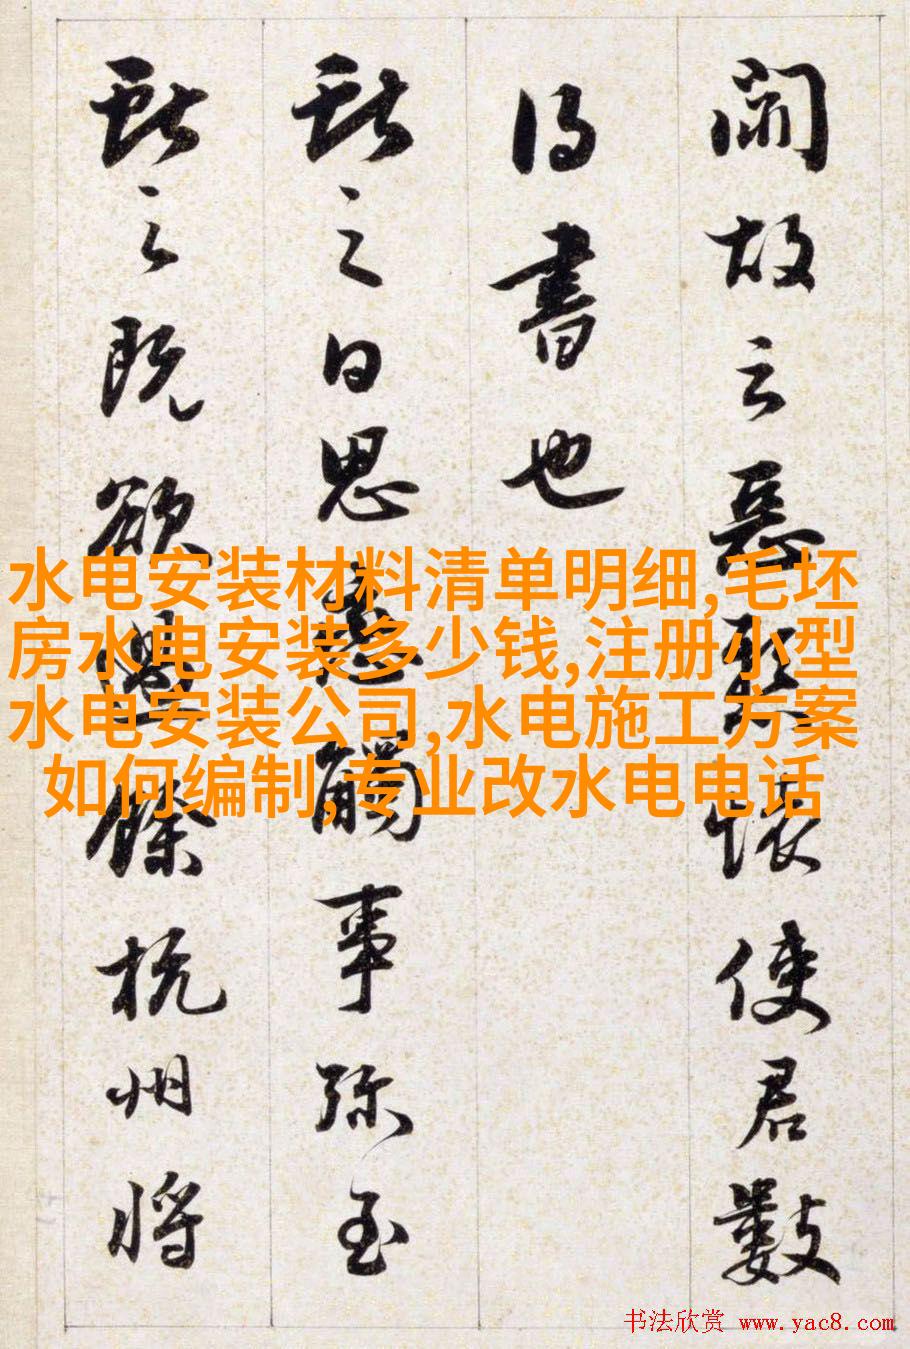 故云惡懷使君數
得書也
獻之白思戀觸事彌至
獻之既欲過餘杭州將
水电安装材料清单明细,毛坯
房水电安装多少钱,注册小型
水电安装公司,水电施工方案
如何编制,专业改水电电话
书法欣赏 www.yac8.com